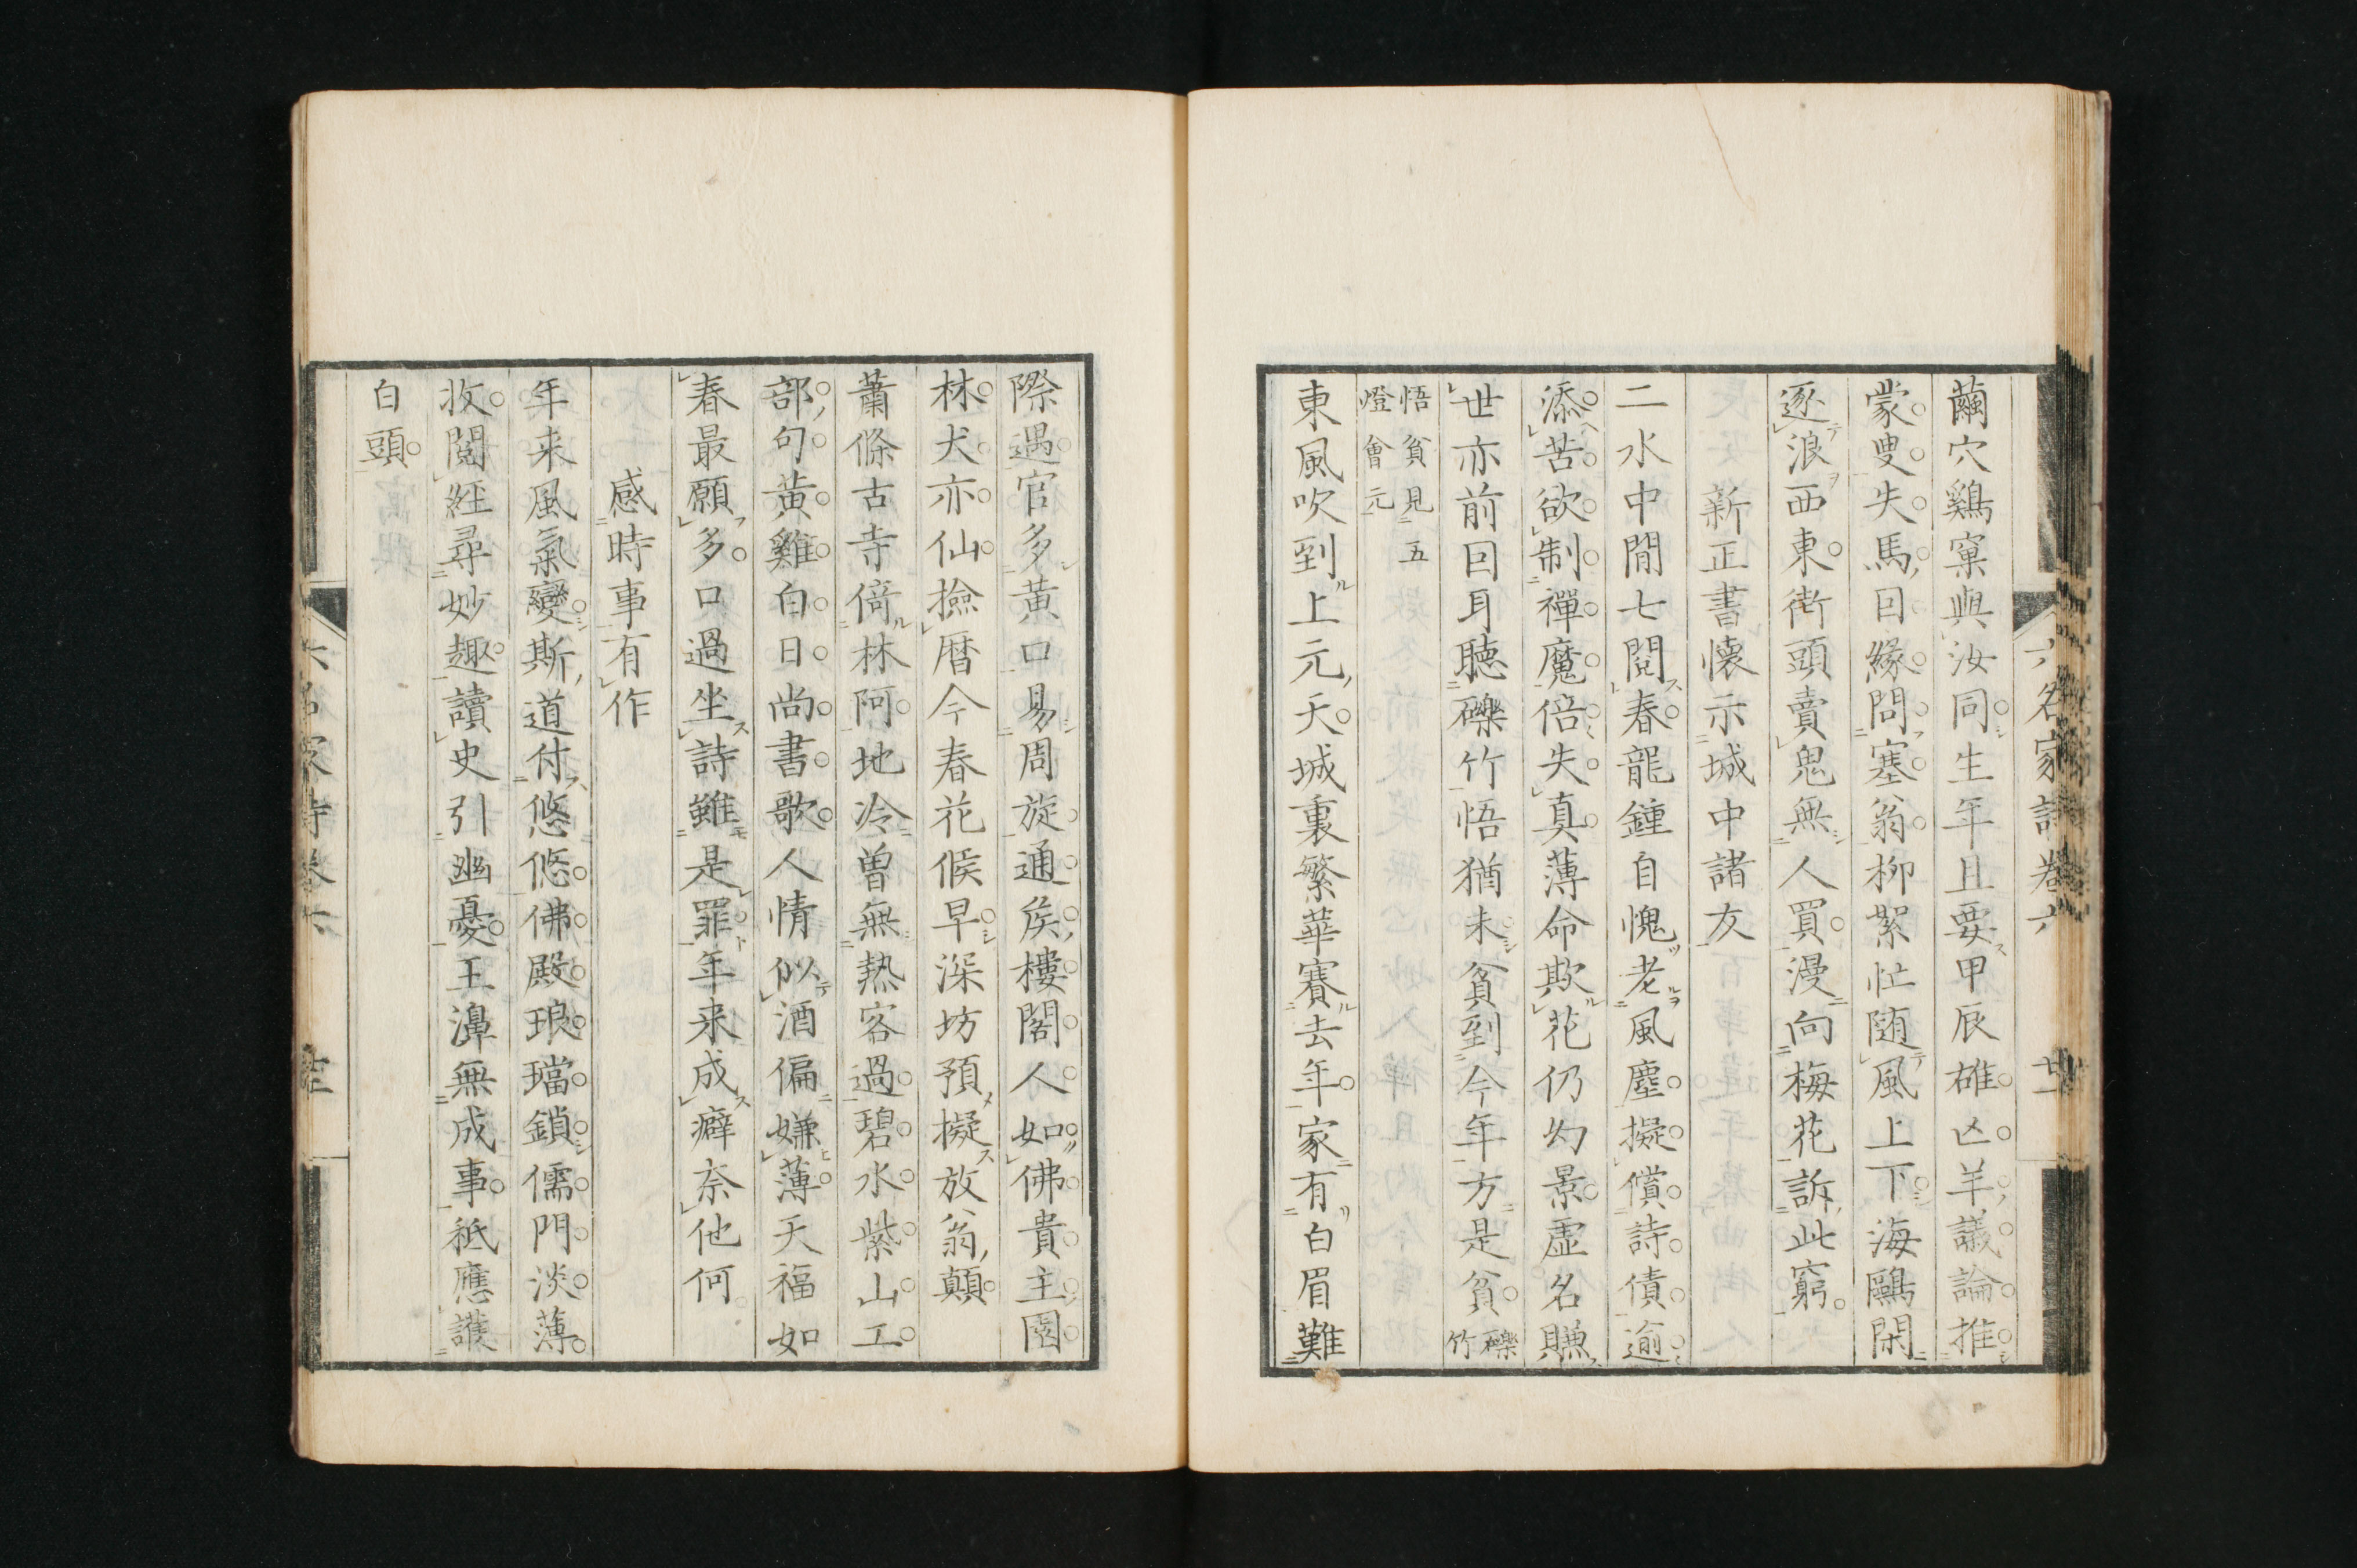 繭穴鷄窠與汝同生年且要甲辰雄亡羊議論推
蒙叟失馬因緣問塞翁柳絮忙随風上下海鷗閑
逐浪西東街頭賣鬼無人買漫向梅花訴此窮
新正書懷示城中諸友
二水中間七閲春龍鍾自愧老風塵擬償詩債逾
添苦欲制禪魔倍失真薄命欺花仍幻景虚名賺
世亦前因耳聴礫竹悟猶未貧到今年方是貧礫竹
悟貧見五
燈會元
東風吹到上元天城裏繁華賽去年家有白眉難
際遇官多黄口易周旋通侯樓閣人如佛貴主園
林犬亦仙撿暦今春花候早深坊預擬放翁顛
蕭條古寺倚林阿地冷曽無熱客過碧水紫山工
部句黄雞白日尚書歌人情似酒偏嫌薄天福如
春最願多口過坐詩雖是罪年来成癖奈他何
感時事有作
年来風氣變斯道付悠悠佛殿琅璫鎖儒門淡薄
收閲経尋妙趣讀史引幽憂王濞無成事秪應護
白頭